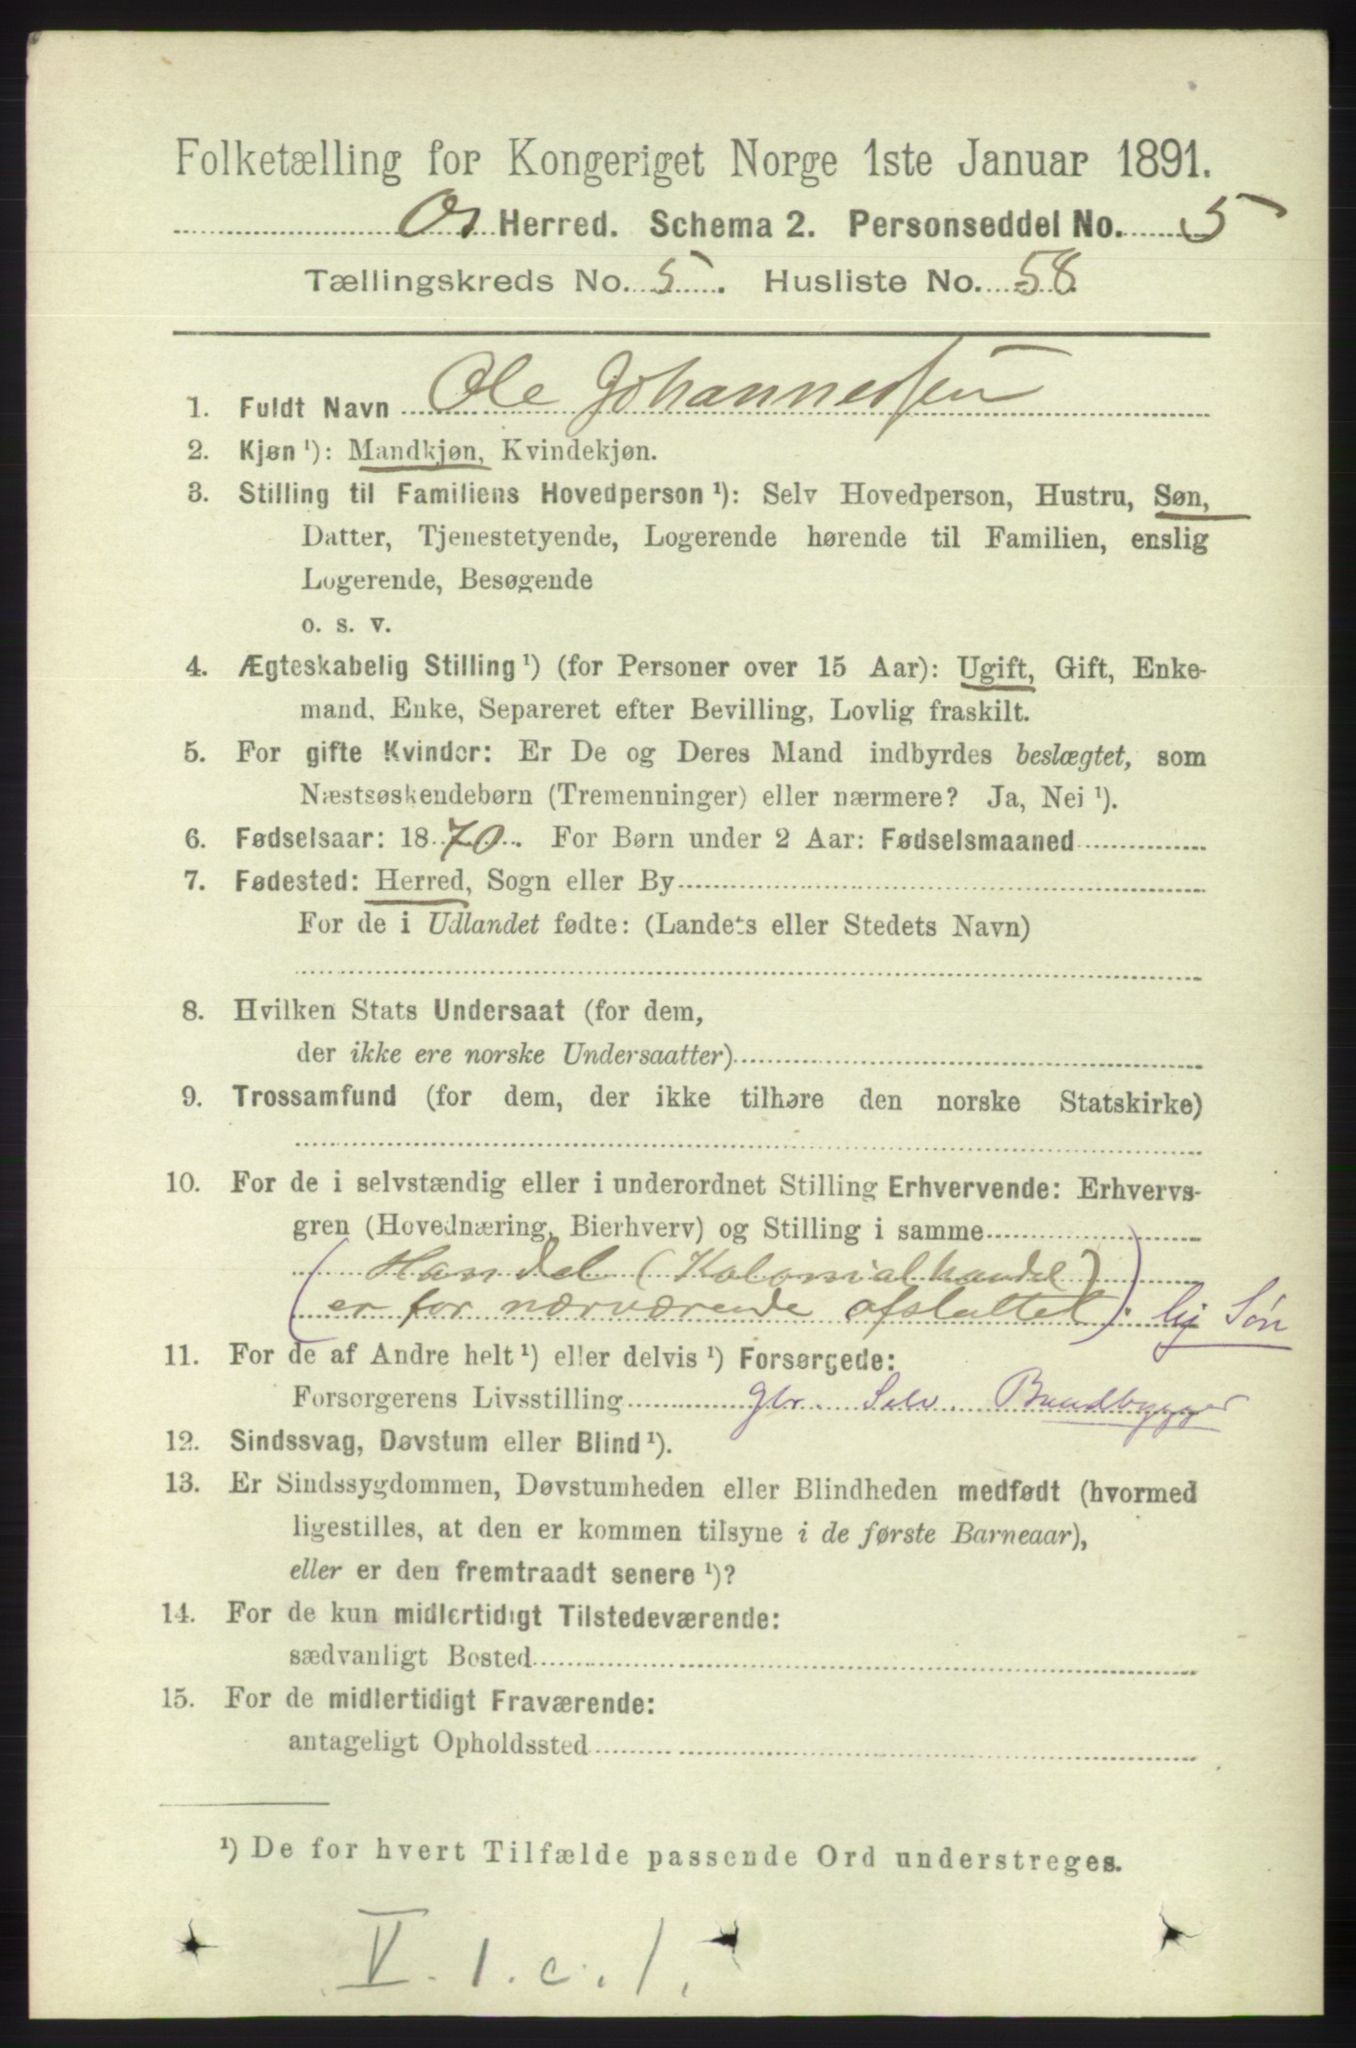 Folketælling for Kongeriget Norge 1ste Januar 1891.
Os Herred. Schema 2. Personseddel No. 5
Tællingskreds No. 5. Husliste No. 58
1. Fuldt Navn Ole Johannessen
2. Kjøn ¹): Mandkjøn, Kvindekjøn.
3. Stilling til Familiens Hovedperson ¹): Selv Hovedperson, Hustru, Søn,
Datter, Tjenestetyende, Logerende hørende til Familien, enslig
Logerende, Besøgende
o. s. v.
4. Ægteskabelig Stilling ¹) (for Personer over 15 Aar): Ugift, Gift, Enke-
mand, Enke, Separeret efter Bevilling, Lovlig fraskilt.
5. For gifte Kvinder: Er De og Deres Mand indbyrdes beslægtet, som
Næstsøskendebørn (Tremenninger) eller nærmere? Ja, Nei ¹).
6. Fødselsaar: 1870. For Børn under 2 Aar: Fødselsmaaned
7. Fødested: Herred, Sogn eller By
For de i Udlandet fødte: (Landets eller Stedets Navn)
8. Hvilken Stats Undersaat (for dem,
der ikke ere norske Undersaatter)
9. Trossamfund (for dem, der ikke tilhøre den norske Statskirke)
10. For de i selvstændig eller i underordnet Stilling Erhvervende: Erhvervs-
gren (Hovednæring, Bierhverv) og Stilling i samme
(Handel (Kolonialhandel)
er for nærværende afsluttet). Søn
11. For de af Andre helt ¹) eller delvis ¹) Forsørgede:
Forsørgerens Livsstilling Gbr. Selv. Baadbygger
12. Sindssvag, Døvstum eller Blind ¹).
13. Er Sindssygdommen, Døvstumheden eller Blindheden medfødt (hvormed
ligestilles, at den er kommen tilsyne i de første Barneaar),
eller er den fremtraadt senere ¹)?
14. For de kun midlertidigt Tilstedeværende:
sædvanligt Bosted
15. For de midlertidigt Fraværende:
antageligt Opholdssted
¹) De for hvert Tilfælde passende Ord understreges.
V. 1. c. 1.